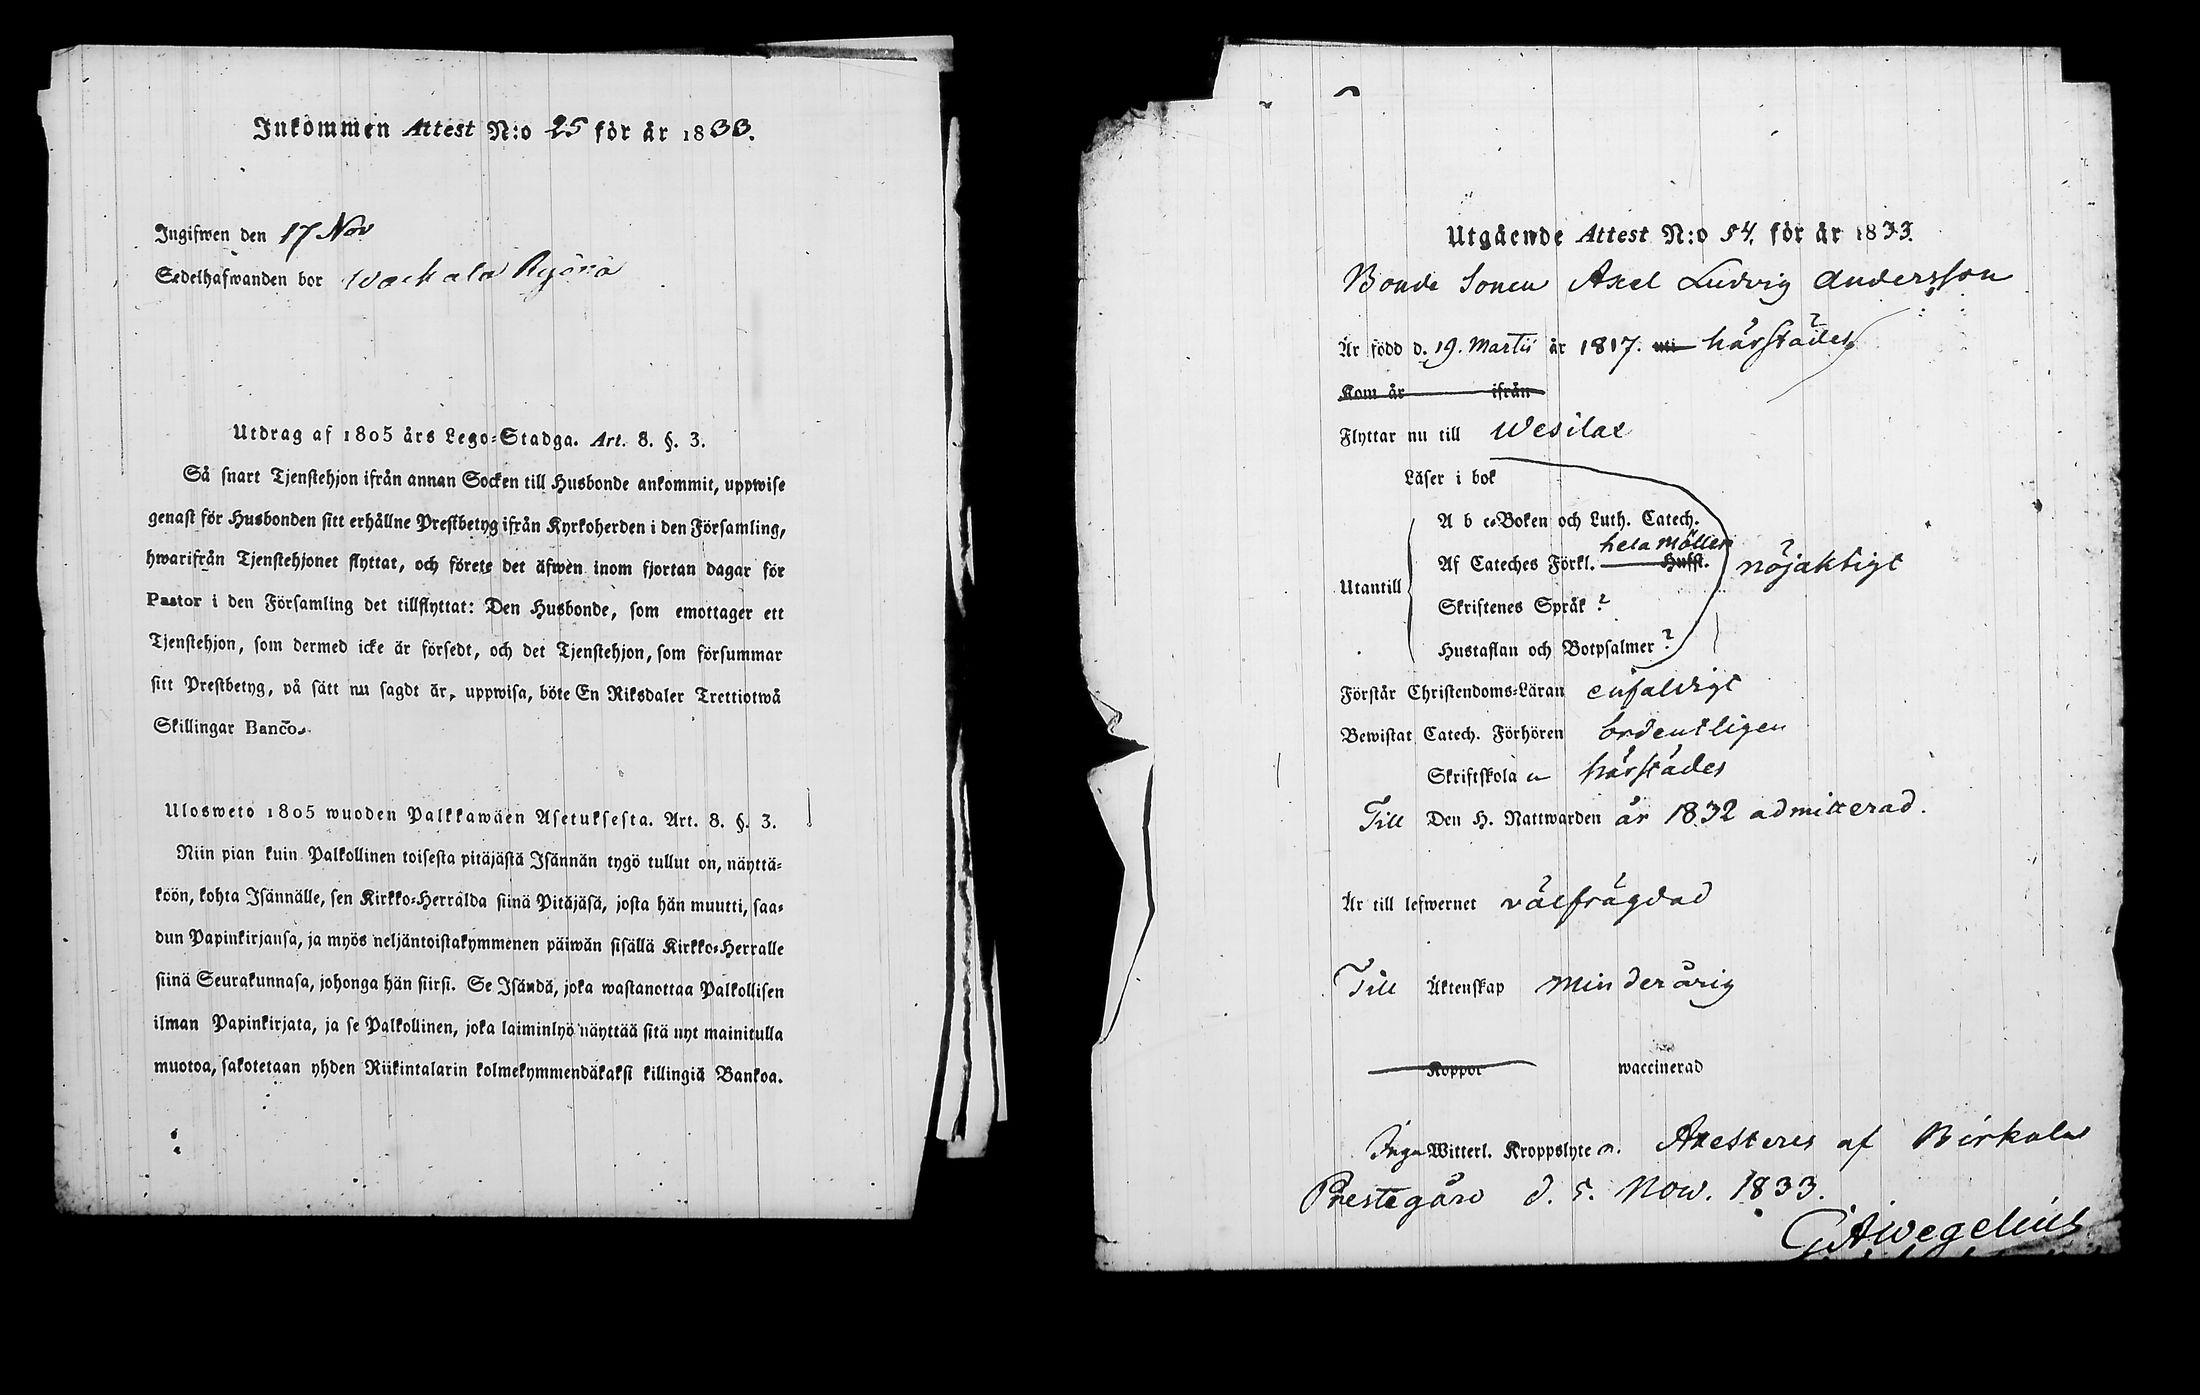 Inkommen Attest N:o 25 för år 1833.
Ingifwen den 17 Nov
Sedelhafwanden bor Wackala
Utdrag af 1805 års Lego-Stadga. Art. 8. §. 3.
Så snart Tjenstehjon ifrån annan Socken till Husbonde ankommit, uppwise
genast för Husbonden sitt erhållne Prestbetyg ifrån Kyrkoherden i den Församling,
hwarifrån Tjenstehjonet flyttat, och förete det äfwen inom fjortan dagar för
Pastor i den Församling det tillflyttat: Den Husbonde, som emottager ett
Tjenstehjon, som dermed icke är försedt, och det Tjenstehjon, som försummar
sitt Prestbetyg, på sätt nu sagdt är, uppwisa, böte En Riksdaler Trettiotwå
Skillingar Banco.
Ulosweto 1805 wuoden Palkkawäen Asetuksesta. Art. 8. §. 3.
Niin pian kuin Palkollinen toisesta pitäjästä Isännän tygö tullut on, näyttä-
köön, kohta Isännälle, sen Kirkko-Herralda siinä Pitäjäsä, josta hän muutti, saa-
dun Papinkirjansa, ja myös neljäntoistakymmenen päiwän sisällä Kirkko-Herralle
siinä Seurakunnasa, johonga hän siirsi. Se Isändä, joka wastanottaa Palkollisen
ilman Papinkirjata, ja se Palkollinen, joka laiminlyö näyttää sitä nyt mainitulla
muotoa, sakotetaan yhden Riikintalarin kolmekymmendäkaksi killingiä Bankoa.
Utgående Attest N:o 54. för år 1833.
Bonde Sonen Axel Ludvig Andersson
Är född d. 19. Martii år 1817. uti härstädes
Kom år ifrån
Flyttar nu till Wesilax
Läser i bok
A b c-Boken och Luth. Catech.
hela Möllers
Af Cateches Förkl. Hufst. nöjaktigt
Utantill
Skriftenes Språk ?
Hustaflan och Botpsalmer ?
Förstår Christendoms-Läran enfaldigt
Bewistat Catech. Förhören ordentligen
Skriftskola n härstädes
Till Den H. Nattwarden år 1832 admitterad.
Är till lefwernet välfrägdad
Till Äktenskap minderårig
Koppor waccinerad
Inga Witterl. Kroppslyte n. Attesteres af Birkala
Prestegård d. 5. Nov. 1833.
Wegelius